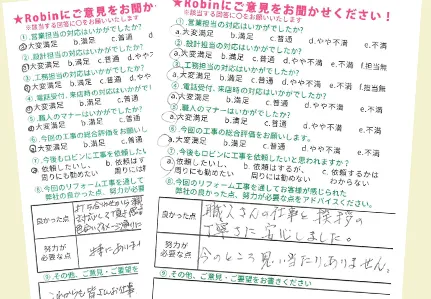 ★Robinにご意見をお聞か
※該当する回答に○をお願いいたします
①.営業担当の対応はいかがでしたか?
a.大変満足 b.満足 c.普通
②.設計担当の対応はいかがでしたか
大変満足 b.満足 c.普通
③.工務担当の対応はいかがでした
大変満足 b.満足 c.普通 d.やや
④.電話受付、来店時の対応はいかが
大変満足 b.満足 c.普通
⑤.職人のマナーはいかがでしたか?
大変満足 b.満足 c.普通
⑥.今回の工事の総合評価をお願いし
大変満足 b.満足 c.普通
⑦.今後もロビンに工事を依頼したい
依頼したいし、 b.依頼はす
周りにも勧めたい 周りには
⑧.今回のリフォーム工事を通して
弊社の良かった点、努力が必要
良かった点
努力が
必要な点
⑨.その他、ご意見・ご要望を
★Robinにご意見をお聞かせください!
※該当する回答に○をお願いいたします
①.営業担当の対応はいかがでしたか?
a.大変満足 b.満足 c.普通 d.やや不満 e.不満
②.設計担当の対応はいかがでしたか?
a.大変満足 b.満足 c.普通 d.やや不満 e.不満 f.担当無
③.工務担当の対応はいかがでしたか?
a.大変満足 b.満足 c.普通 d.やや不満 e.不満 f.担当無
④.電話受付、来店時の対応はいかがでしたか?
a.大変満足 b.満足 c.普通 d.やや不満 e.不満
⑤.職人のマナーはいかがでしたか?
a.大変満足 b.満足 c.普通 d.やや不満 e.不満
⑥.今回の工事の総合評価をお願いします。
a.大変満足 b.満足 c.普通 d.やや不満 e.不満
⑦.今後もロビンに工事を依頼したいと思われますか?
a.依頼したいし、 b.依頼はするが、 c.依頼するかは
周りにも勧めたい 周りには勧めない わからない
⑧.今回のリフォーム工事を通してお客様が感じられた
弊社の良かった点、努力が必要な点をアドバイスください。
良かった点
職人さんの仕事と挨拶の
丁寧さに安心しました。
努力が
必要な点
今のところ思い当たりありません。
⑨.その他、ご意見・ご要望をお書きください